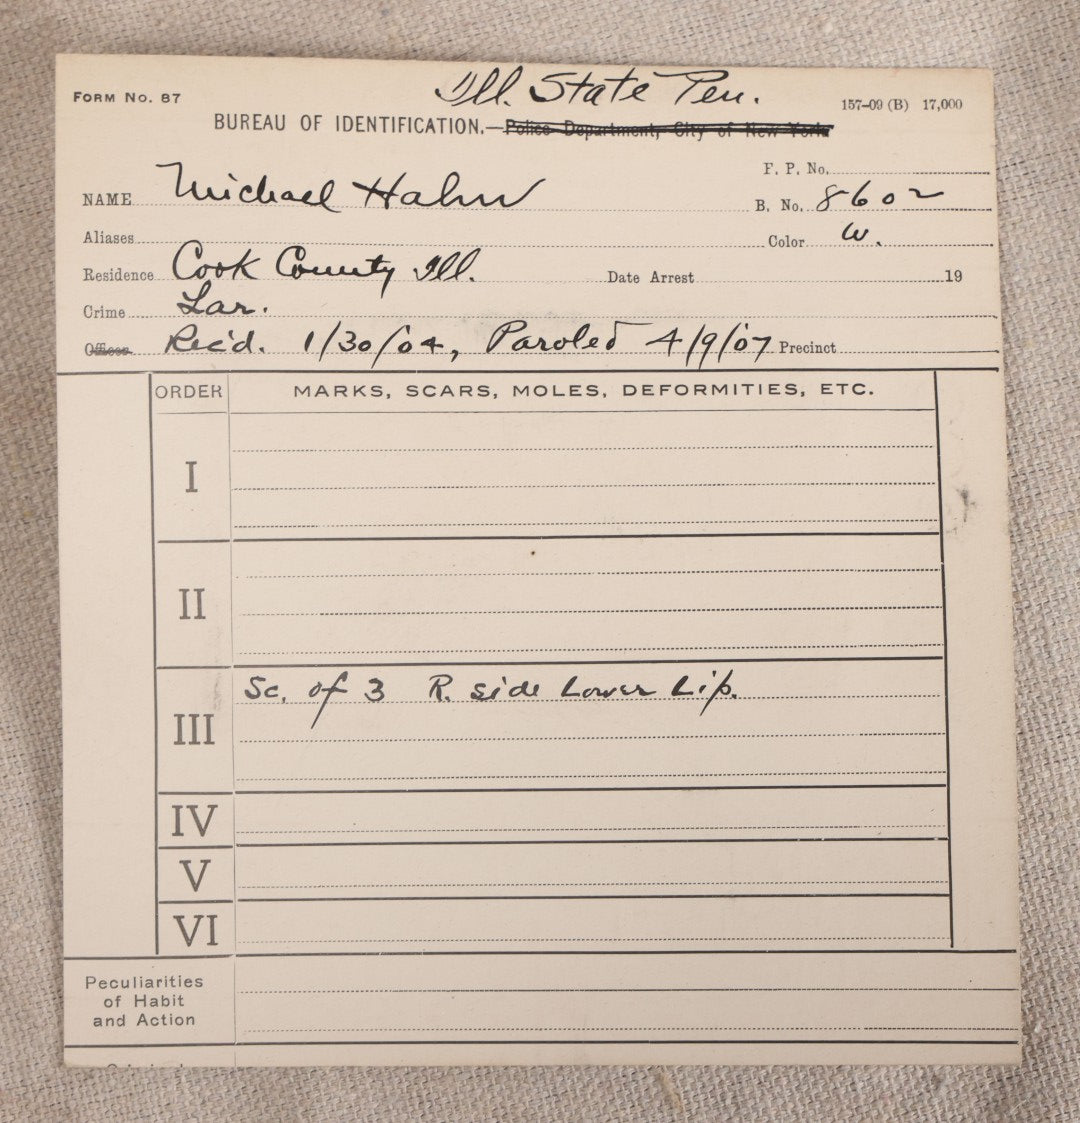 Ill. State Pen.
FORM NO. 87
157-09 (B) 17,000
BUREAU OF IDENTIFICATION.—Police Department, City of New York
F. P. No.
NAME Michael Hahn
B. No. 8602
Aliases
Color W.
Residence Cook County Ill.
Date Arrest 19
Crime Lar.
Officer Rec'd. 1/30/04, Paroled 4/9/07 Precinct
ORDER MARKS, SCARS, MOLES, DEFORMITIES, ETC.
I
II
III Sc. of 3 R. side Lower Lip.
IV
V
VI
Peculiarities
of Habit
and Action